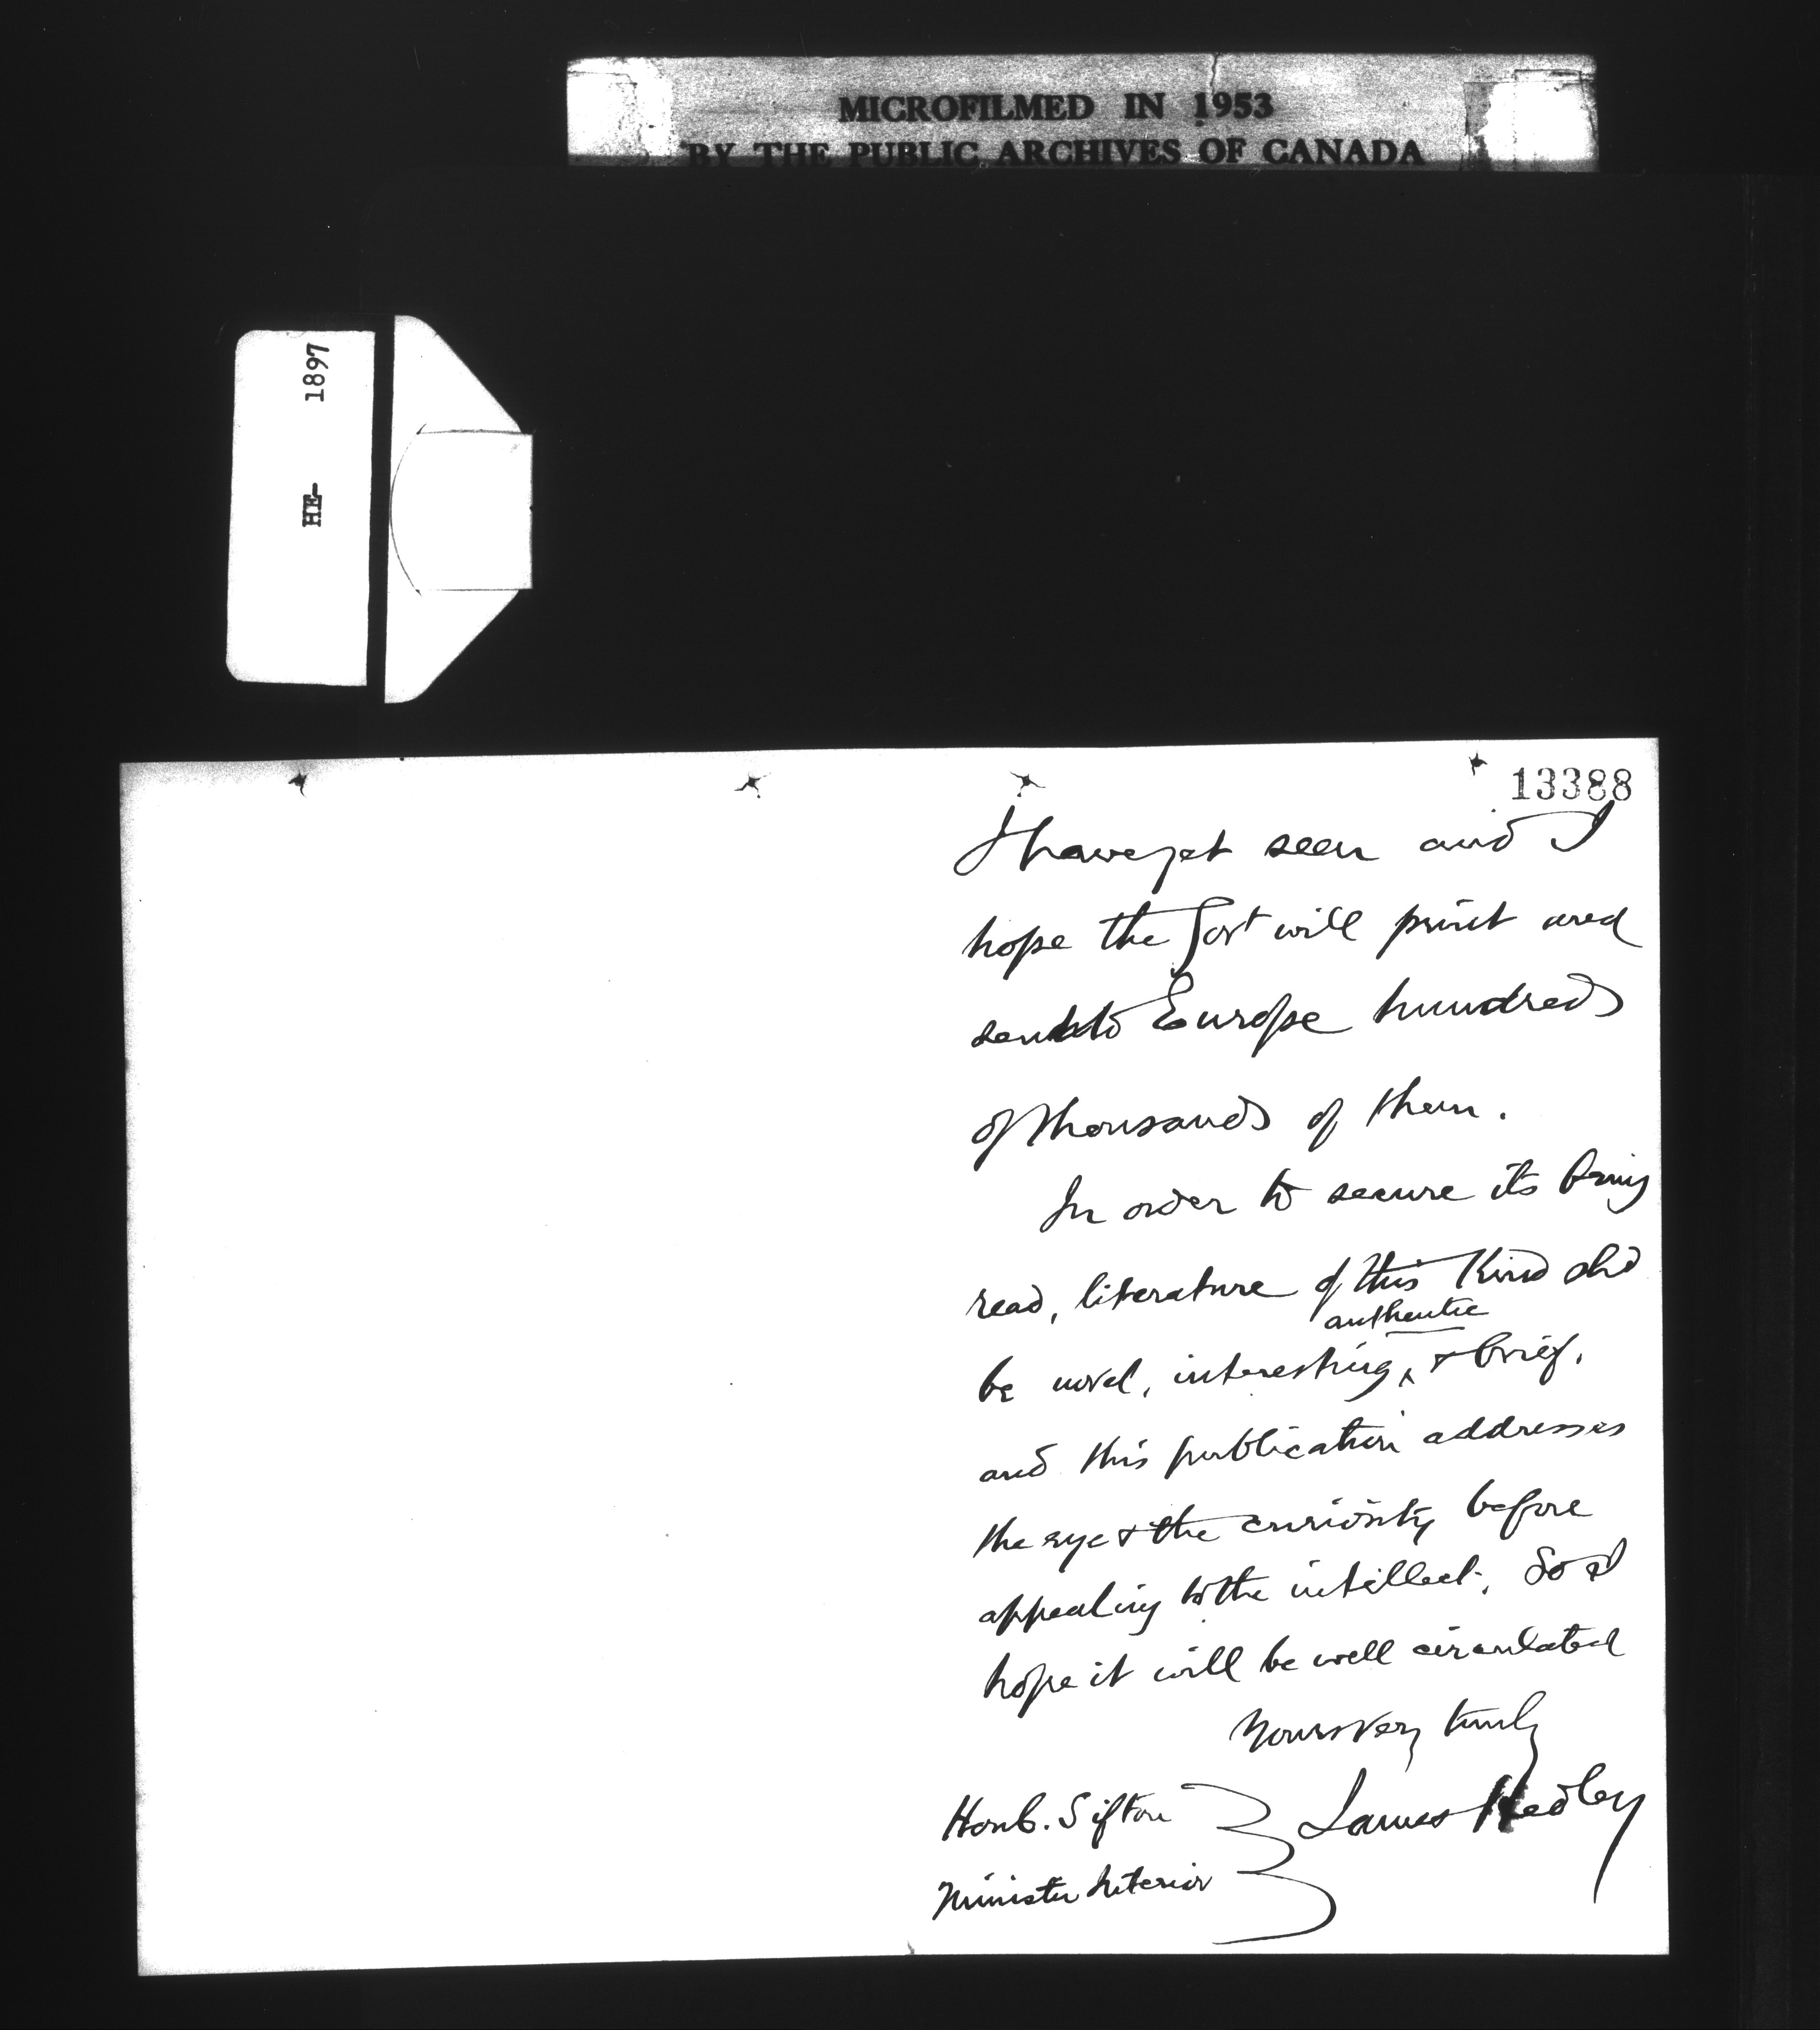 MICROFILMED IN 1953
BY THE PUBLIC ARCHIVES OF CANADA
HE- 1897
13388
I have yet seen and I
hope the Govt will print and
send to Europe hundreds
of thousands of them.
In order to secure its being
read, literature of this kind shd
authentic
be novel, interesting, & brief.
and this publication addresses
the eye & the curiosity before
appealing to the intellect. So I
hope it will be well circulated
Yours very truly
James Hedley
Hon C. Sifton
Minister Interior